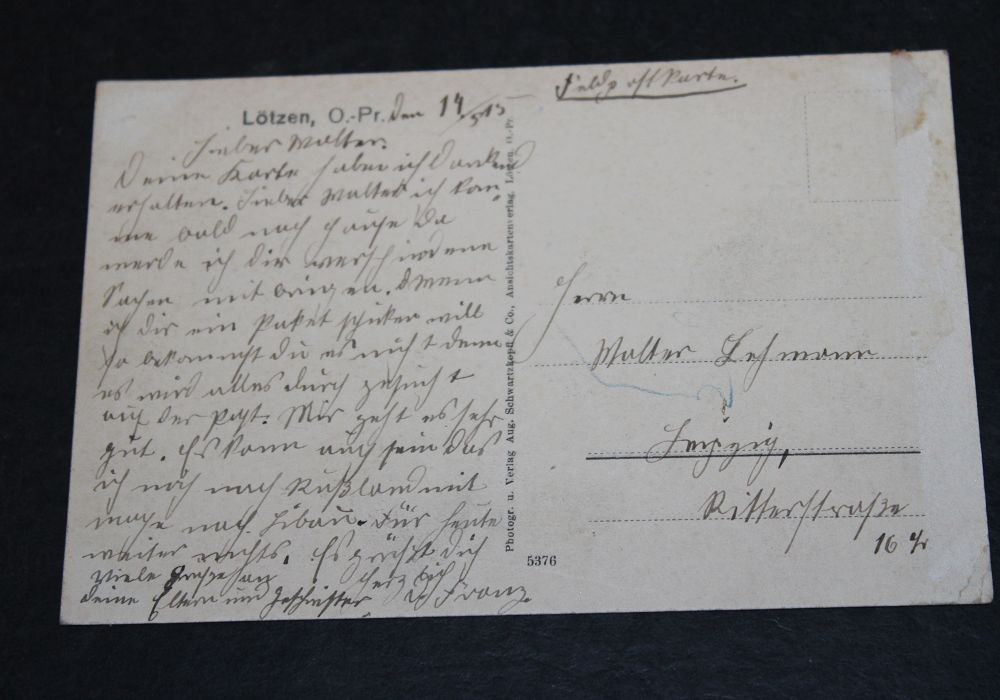 Feldpostkarte.
Lötzen, O.-Pr. den 14/5 15
Lieber Walter.
Deine Karte habe ich dankend
erhalten. Lieber Walter ich kom-
me bald nach Hause da
werde ich dir verschiedene
Sachen mit bringen. Wenn
ich dir ein Paket schicken will
so bekommst du es nicht denn
es wird alles durch gesucht
auf der Post. Mir geht es sehr
gut. Es kann auch sein das
ich noch nach Rußland mit
nach Libau. Für heute
weiter nichts. Es grüßt dich
herzlich
Franz.
Viele Grüße an
deine Eltern und Geschwister
Photogr. u. Verlag Aug. Schwartzkopff & Co., Ansichtskartenverlag, Lötzen, O.-Pr.
5376
Herrn
Walter Lehmann
Leipzig,
Ritterstraße
16